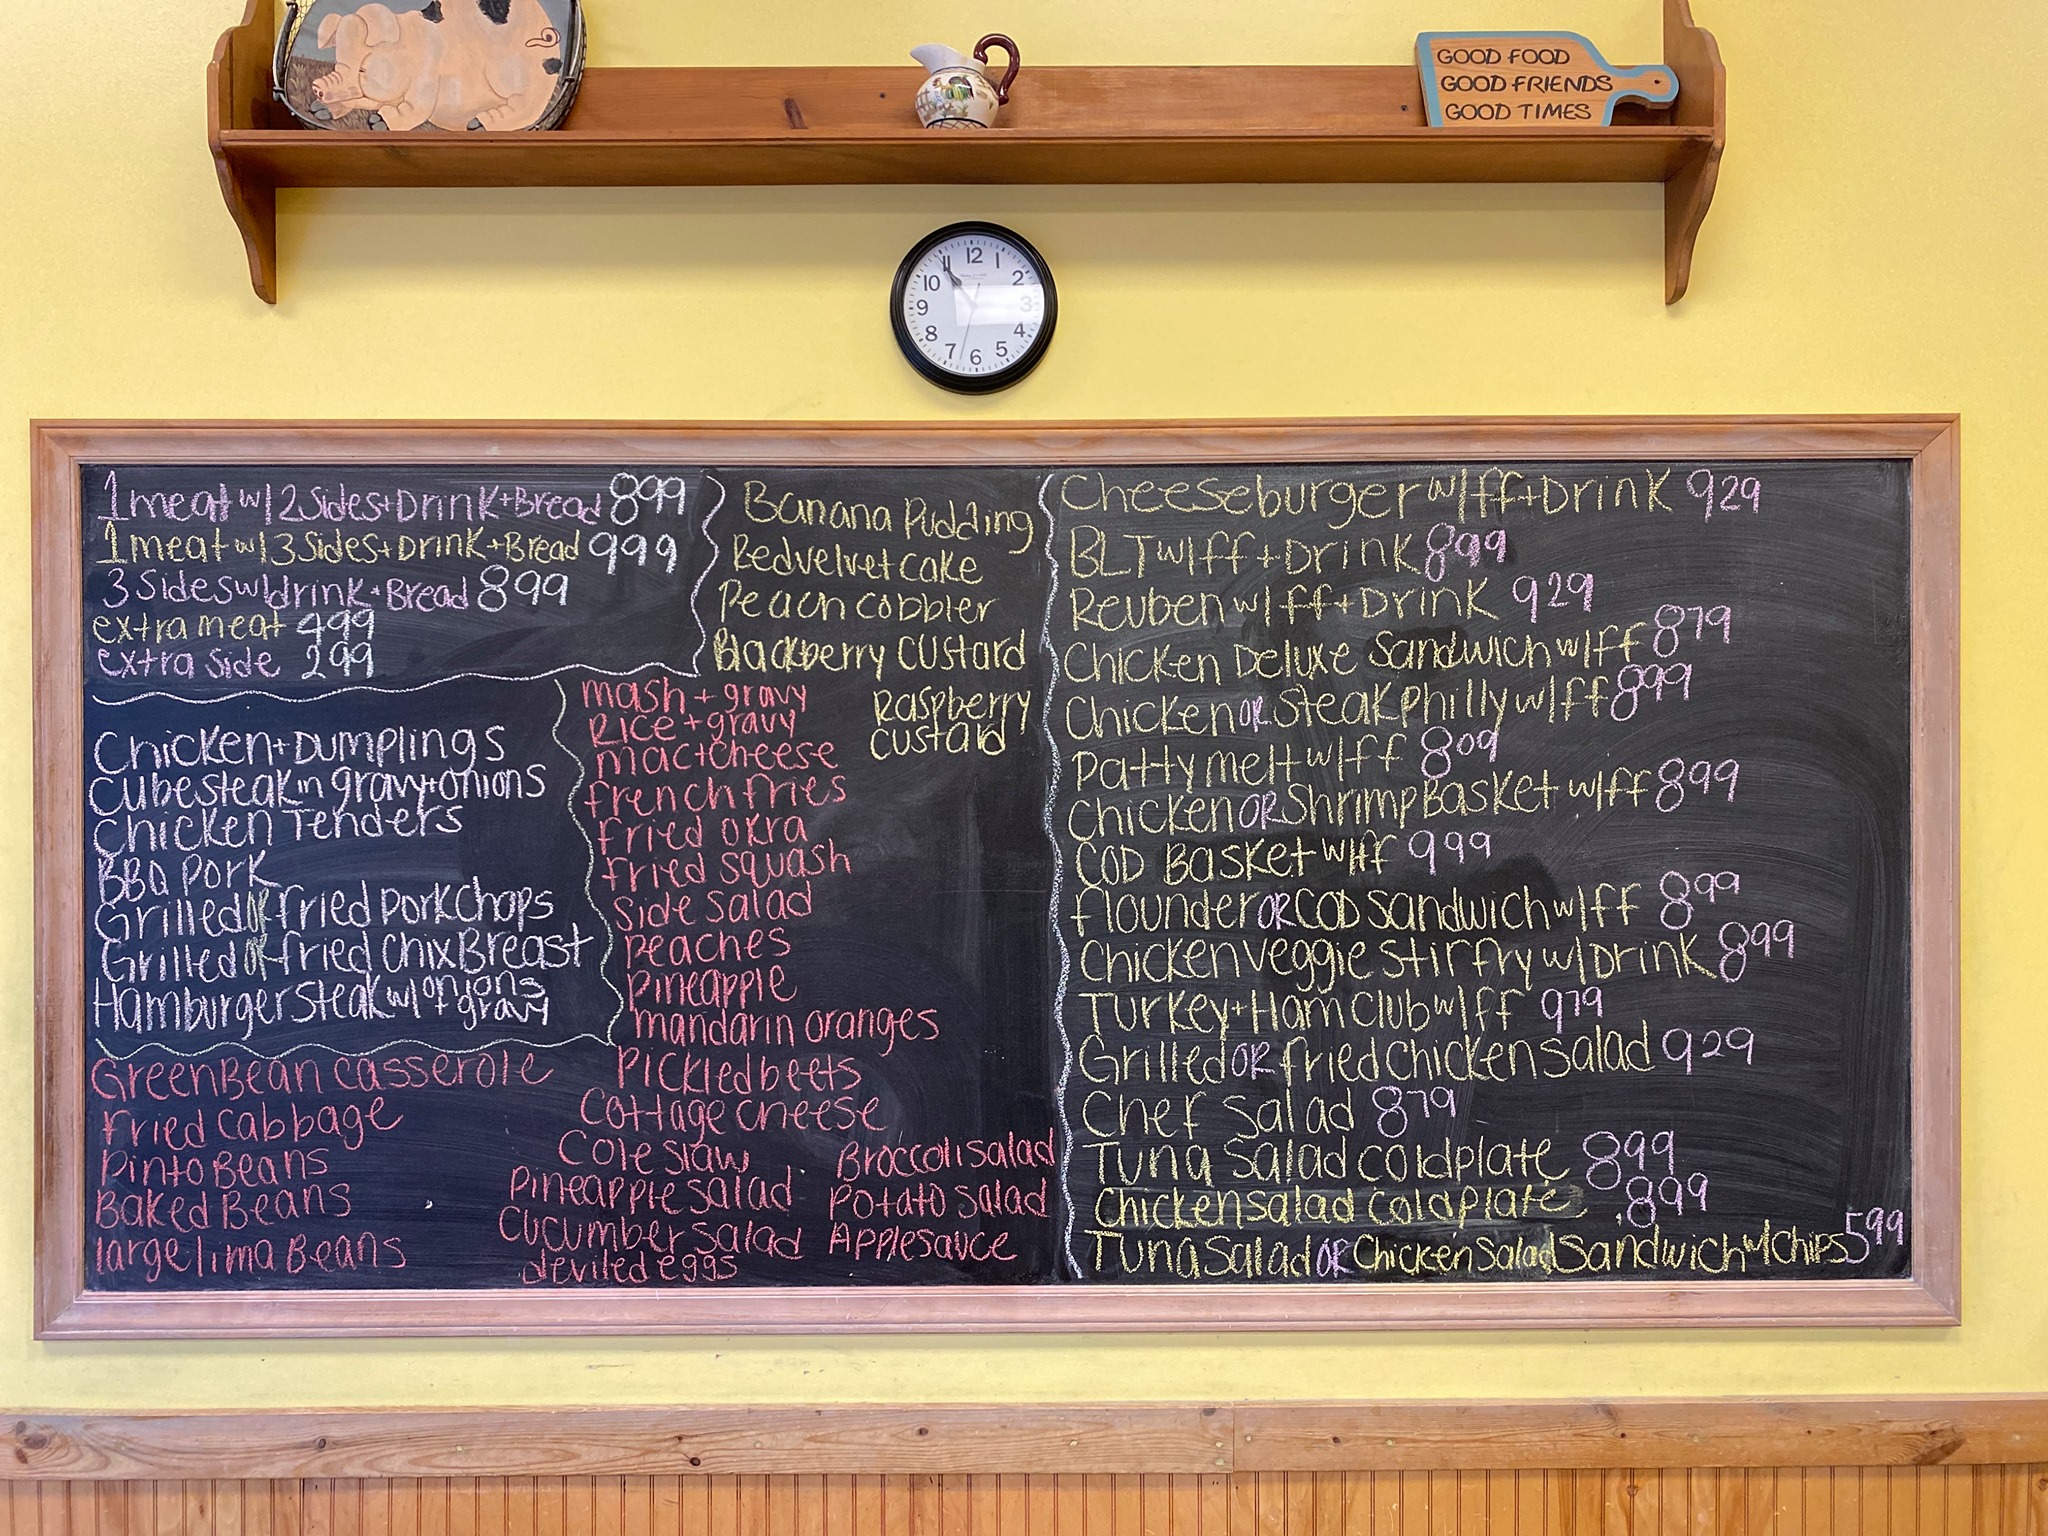 GOOD FOOD
GOOD FRIENDS
GOOD TIMES
12
1
2
3
4
5
6
7
8
9
10
11
1 meat w/ 2 Sides + Drink + Bread 899
1 meat w/ 3 Sides + Drink + Bread 999
3 Sides w/ drink + Bread 899
extra meat 499
extra side 299
Chicken + Dumplings
Cubesteak in gravy + onions
Chicken Tenders
BBQ Pork
Grilled or fried porkchops
Grilled or fried Chix Breast
Hamburger steak w/ onions + gravy
Banana Pudding
Redvelvet cake
Peach cobbler
Blackberry custard
Raspberry
custard
mash + gravy
Rice + gravy
mac + cheese
french fries
fried okra
fried squash
Side salad
peaches
Pineapple
mandarin oranges
Pickled beets
Cottage cheese
Cole slaw
Pineapple salad
Cucumber salad
deviled eggs
Broccoli salad
Potato salad
Applesauce
Green Bean casserole
Fried cabbage
Pinto Beans
Baked Beans
large lima Beans
Cheeseburger w/ ff + Drink 929
BLT w/ ff + Drink 899
Reuben w/ ff + Drink 929
Chicken Deluxe Sandwich w/ ff 879
Chicken OR Steak philly w/ ff 899
Patty melt w/ ff 809
Chicken OR Shrimp Basket w/ ff 899
COD Basket w/ ff 999
Flounder OR COD Sandwich w/ ff 899
Chicken Veggie Stir fry w/ Drink 899
Turkey + Ham Club w/ ff 979
Grilled OR fried chicken salad 929
Chef Salad 879
Tuna Salad coldplate 899
Chicken salad cold plate 899
Tuna Salad OR Chicken Salad Sandwich w/ Chips 599